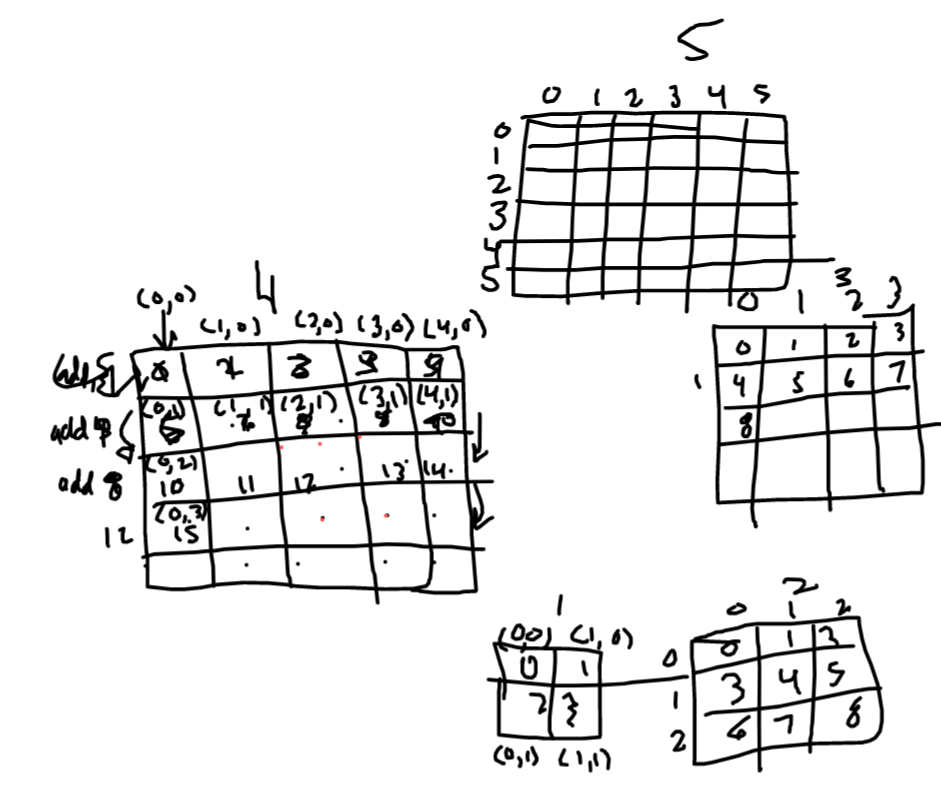 5
0 1 2 3 4 5
0
1
2
3
4
5
4
(0,0)
(1,0) (2,0) (3,0) (4,0)
(0,1) (1,1) (2,1) (3,1) (4,1)
add
(0,2)
add 8 10 11 12 13 14
(0,3)
12 15
3
0 1 2 3
0 1 2 3
1 4 5 6 7
8
1
(0,0) (1,0)
0 1
2 3
(0,1) (1,1)
2
0 1 2
0 0 1
1 3 4 5
2 6 7 8